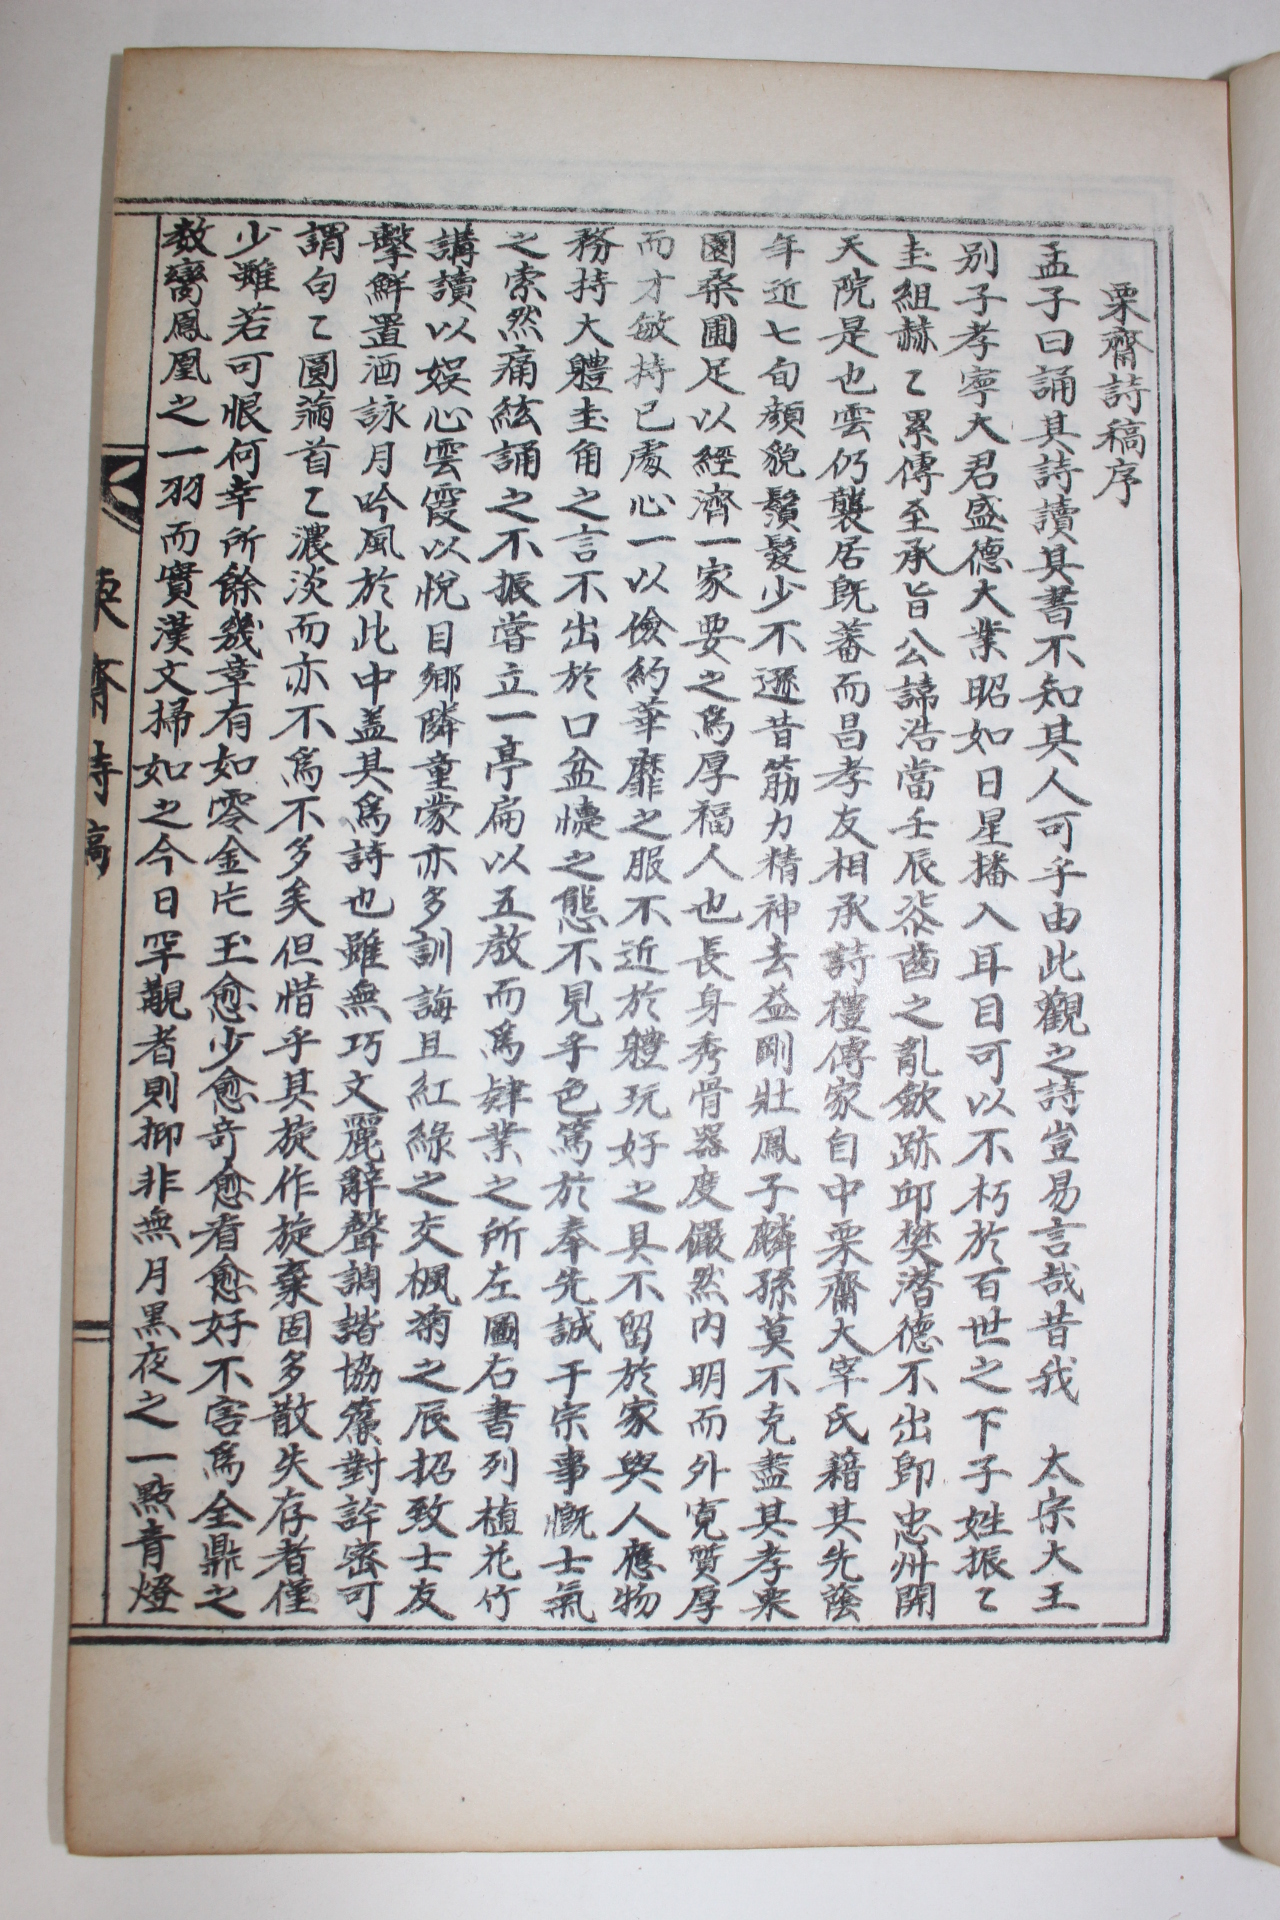 栗齋詩稿序
孟子曰誦其詩讀其書不知其人可乎由此觀之詩豈易言哉昔我 太宗大王
别子孝寧大君盛德大業昭如日星播入耳目可以不朽於百世之下子姓振〻
圭組赫〻累傳至承旨公諱浩當壬辰漆齒之亂斂跡邱樊潛德不出卽忠州開
天院是也雲仍襲居旣蕃而昌孝友相承詩禮傳家自中栗齋大宰氏藉其先蔭
年近七旬顔貌鬚髮少不遜昔筋力精神去益剛壯鳳子麟孫莫不克盡其孝栗
園桑圃足以經濟一家要之爲厚福人也長身秀骨器度儼然内明而外寛質厚
而才敏持已處心一以儉約華靡之服不近於軆玩好之具不留於家與人應物
務持大軆圭角之言不出於口忿懥之態不見乎色篤於奉先誠于宗事慨士氣
之索然痛絃誦之不振嘗立一亭扁以五教而爲肄業之所左圖右書列植花竹
講讀以娛心雲霞以悅目鄉隣童蒙亦多訓誨且紅綠之交楓菊之辰招致士友
擊鮮置酒詠月吟風於此中盖其爲詩也雖無巧文麗辭聲調諧協簾對詳密可
謂句〻圓滿首〻濃淡而亦不爲不多矣但惜乎其旋作旋棄固多散失存者僅
少雖若可恨何幸所餘幾章有如零金片玉愈少愈奇愈看愈好不害爲全鼎之
數臠鳳凰之一羽而實漢文掃如之今日罕觀者則抑非無月黑夜之一點青燈
栗齋詩稿